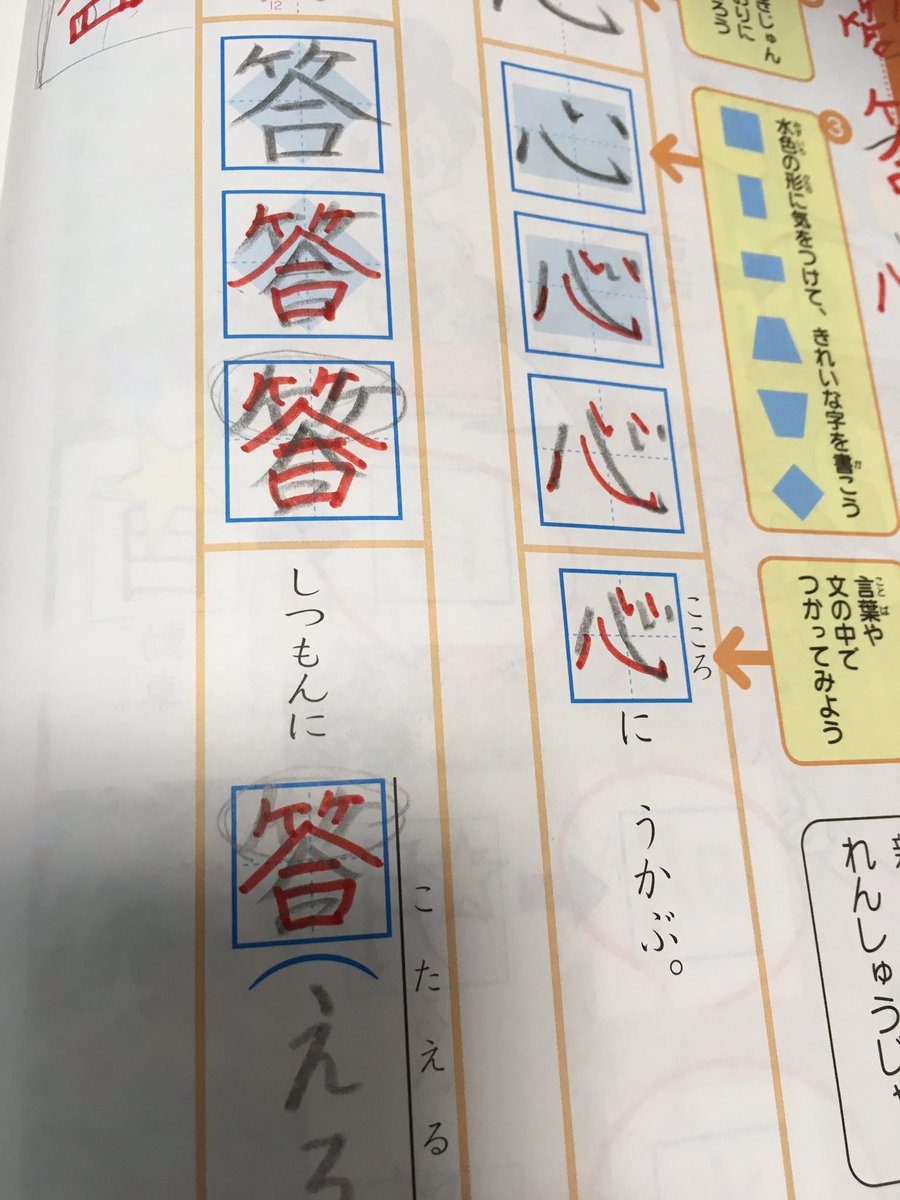 ③
水色の形に気をつけて、きれいな字を書こう
みずいろ
かたち
か
言葉や
ことば
文の中で
つかってみよう
れんしゅう
心
心
心
心に うかぶ。
こころ
12
答
答
答
しつもんに 答える
こたえる